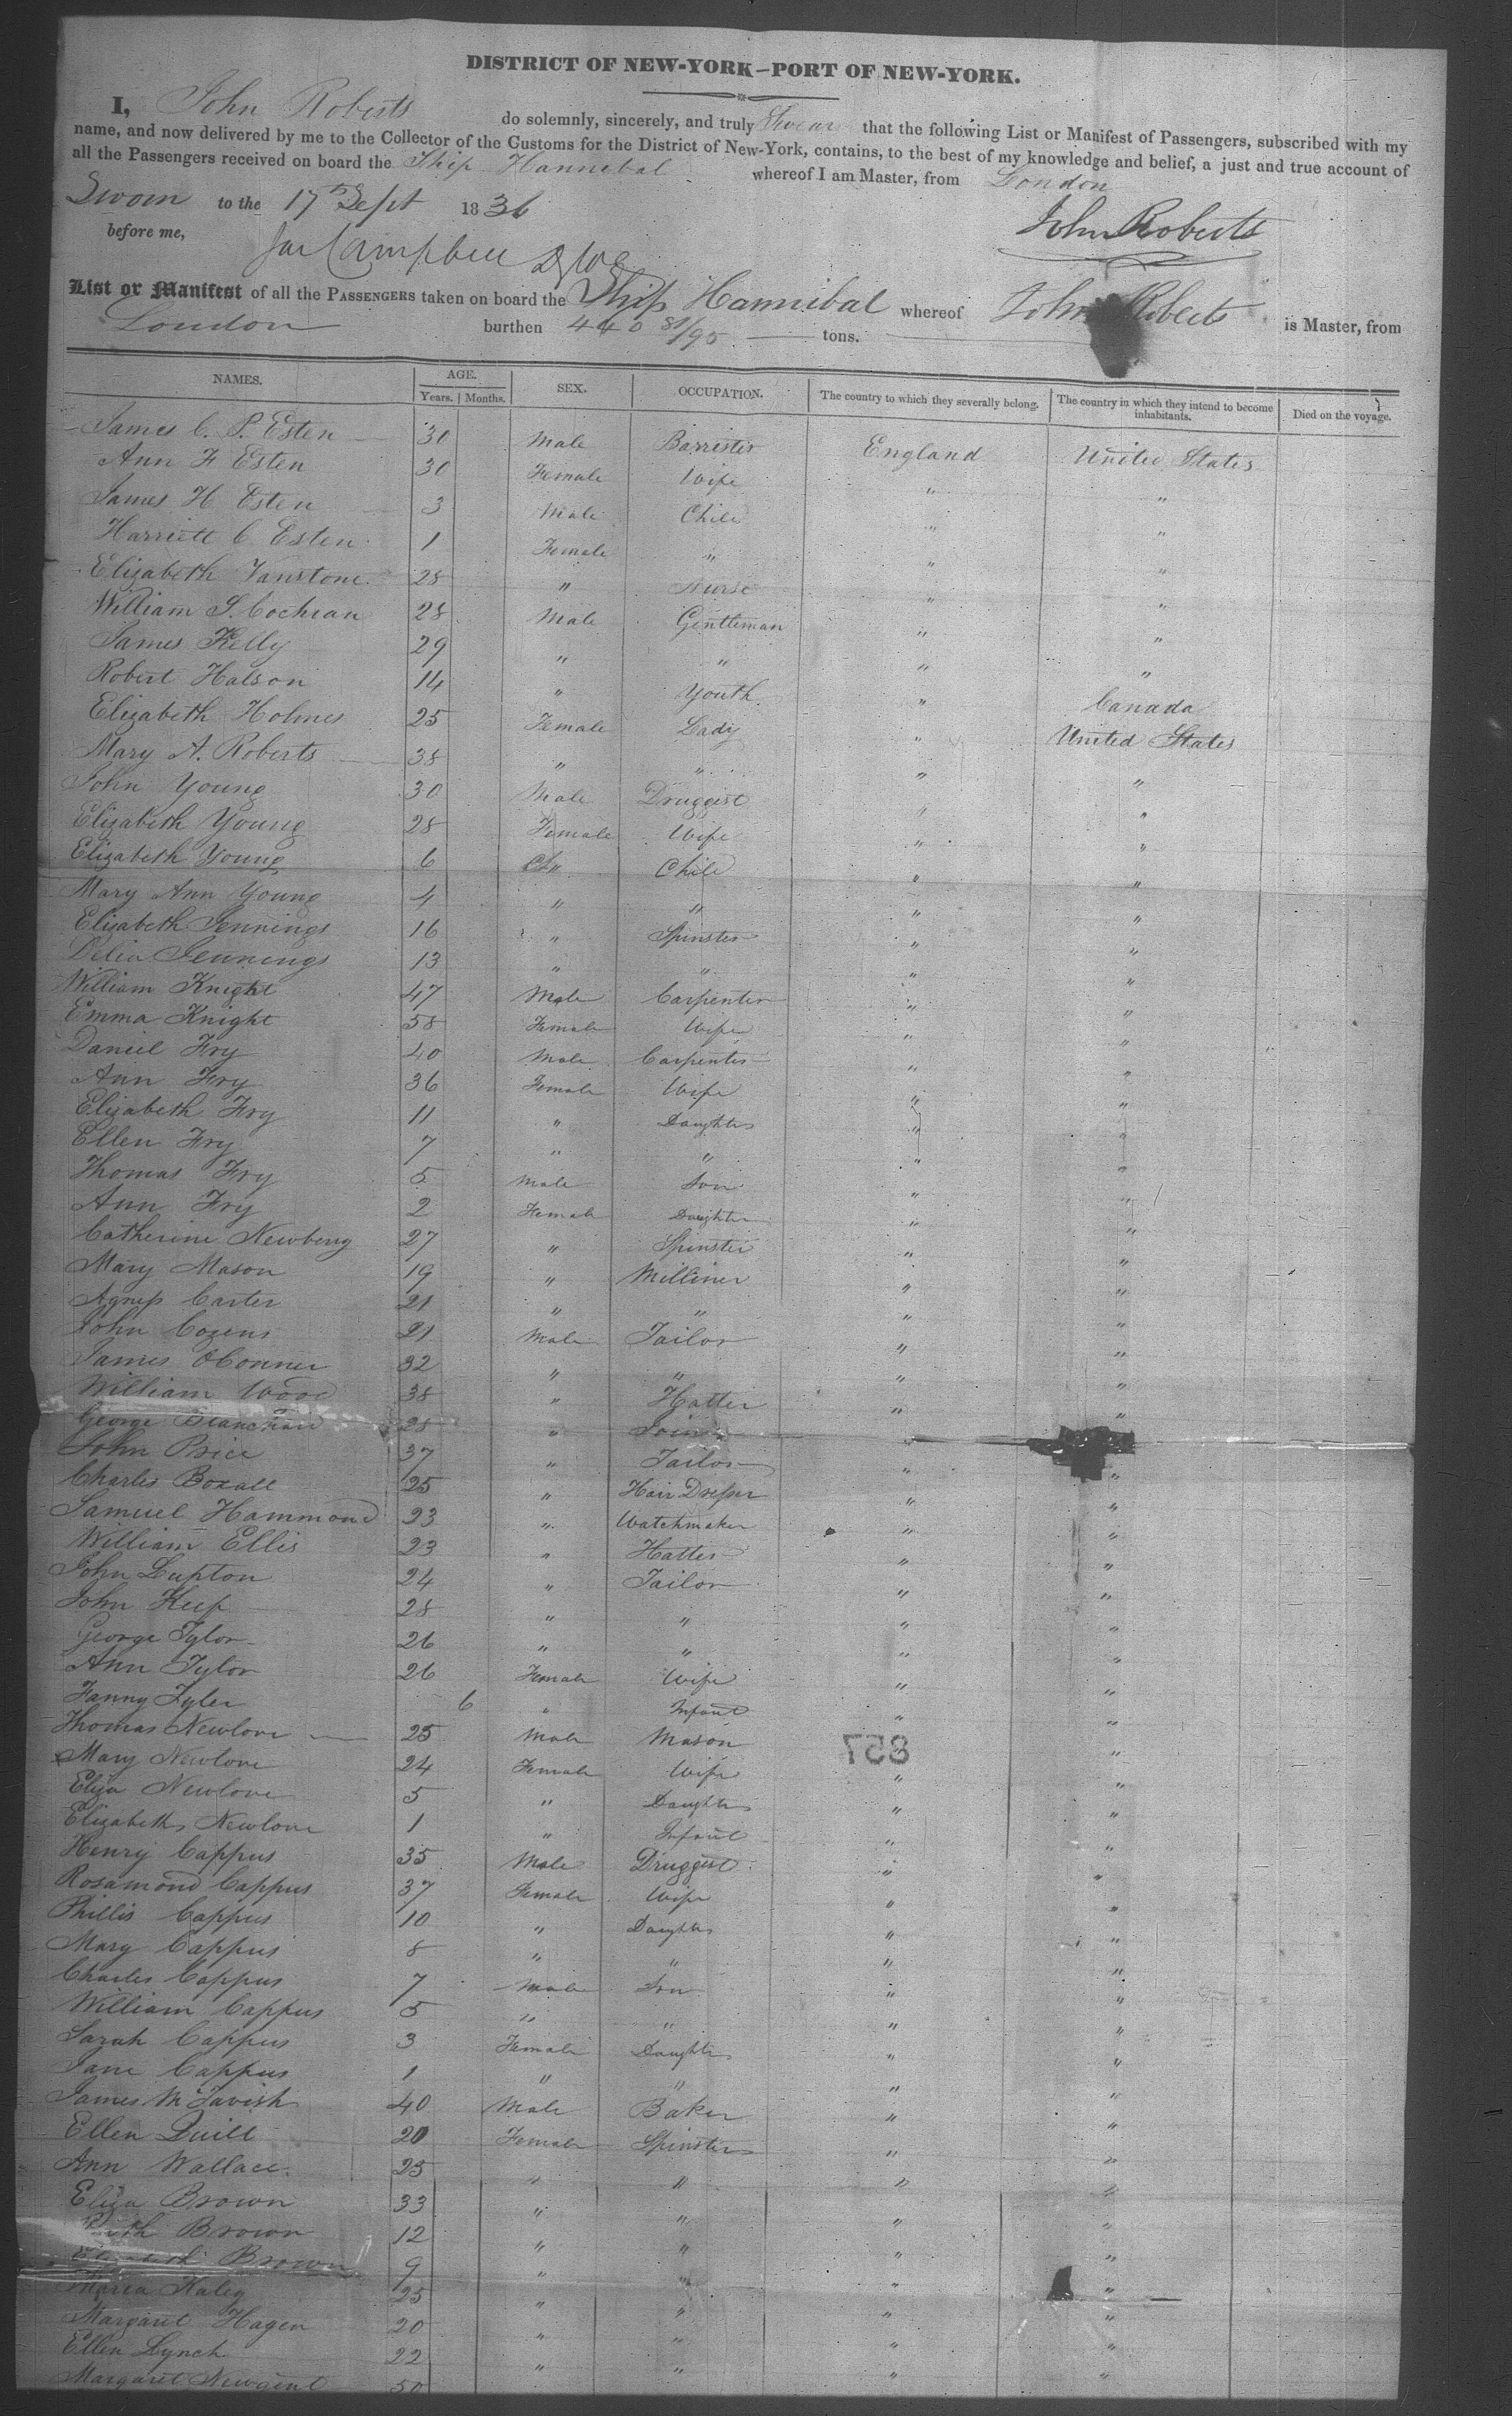 DISTRICT OF NEW-YORK—PORT OF NEW-YORK.
I, John Roberts do solemnly, sincerely, and truly Swear that the following List or Manifest of Passengers, subscribed with my
name, and now delivered by me to the Collector of the Customs for the District of New-York, contains, to the best of my knowledge and belief, a just and true account of
all the Passengers received on board the Ship Hannibal whereof I am Master, from London
Sworn to the 17th Sept 1836
before me, John Roberts
Jas Campbell
List or Manifest of all the PASSENGERS taken on board the Ship Hannibal whereof John Roberts is Master, from
London burthen 440 81/95 tons.
NAMES. AGE. SEX. OCCUPATION. The country to which they severally belong. The country in which they intend to become inhabitants. Died on the voyage.
Years. Months.
James C. P. Esten 30 Male Barrister England United States
Ann F Esten 30 Female Wife " "
James H Esten 3 Male Child " "
Harriett C Esten 1 Female " " "
Elizabeth Vanstone 28 " Nurse " "
William S. Cochran 28 Male Gentleman " "
James Kelly 29 " " " "
Robert Halson 14 " Youth " Canada
Elizabeth Holmes 25 Female Lady " United States
Mary A. Roberts 38 " " " "
John Young 30 Male Druggist " "
Elizabeth Young 28 Female Wife " "
Elizabeth Young 6 " Child " "
Mary Ann Young 4 " " " "
Elizabeth Jennings 16 " Spinster " "
Delia Jennings 13 " " " "
William Knight 47 Male Carpenter " "
Emma Knight 58 Female Wife " "
Daniel Fry 40 Male Carpenter " "
Ann Fry 36 Female Wife " "
Elizabeth Fry 11 " Daughter " "
Ellen Fry 7 " " " "
Thomas Fry 5 Male Son " "
Ann Fry 2 Female Daughter " "
Catherine Newberry 27 " Spinster " "
Mary Mason 19 " Milliner " "
Agness Carter 21 " " " "
John Cozens 21 Male Tailor " "
James OConner 32 " " " "
William Wood 38 " Hatter " "
George Blanchard 28 " Joiner
John Price 37 " Tailor " "
Charles Boxall 25 " Hair Dresser " "
Samuel Hammond 23 " Watchmaker " "
William Ellis 23 " Hatter " "
John Lupton 24 " Tailor " "
John Keep 28 " " " "
George Tylor 26 " " " "
Ann Tylor 26 Female Wife " "
Fanny Tyler 6 " Infant " "
Thomas Newlove 25 Male Mason " "
Mary Newlove 24 Female Wife " "
Eliza Newlove 5 " Daughter " "
Elizabeth Newlove 1 " Infant " "
Henry Cappus 35 Male Druggist " "
Rosamond Cappus 37 Female Wife " "
Phillis Cappus 10 " Daughter " "
Mary Cappus 8 " " " "
Charles Cappus 7 Male Son " "
William Cappus 5 " " " "
Sarah Cappus 3 Female Daughter " "
Jane Cappus 1 " " " "
James McTavish 40 Male Baker " "
Ellen Quill 20 Female Spinster " "
Ann Wallace 25 " " " "
Eliza Brown 33 " " " "
Brown 12 " " " "
Elizabeth Brown 9 " " " "
Maria Haley 25 " " " "
Margaret Hagen 20 " " " "
Ellen Lynch 22 " " " "
Margaret Newgent 50
857